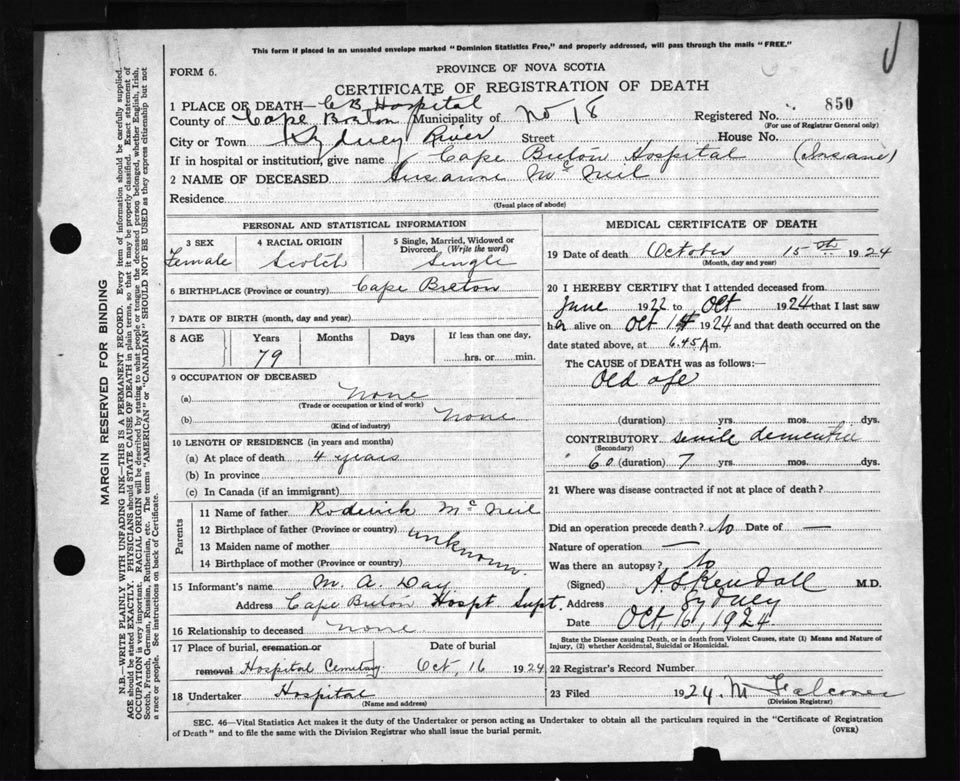 This form if placed in an unsealed envelope marked "Dominion Statistics Free," and properly addressed, will pass through the mails "FREE."
FORM 6.
PROVINCE OF NOVA SCOTIA
CERTIFICATE OF REGISTRATION OF DEATH
1 PLACE OF DEATH— C B Hospital
County of Cape Breton Municipality of No 18 Registered No. 850
(For use of Registrar General only)
City or Town Sydney River Street House No.
If in hospital or institution, give name Cape Breton Hospital (Insane)
2 NAME OF DECEASED Susanne McNeil
Residence
(Usual place of abode)
PERSONAL AND STATISTICAL INFORMATION
3 SEX 4 RACIAL ORIGIN 5 Single, Married, Widowed or Divorced, (Write the word)
Female Scotch Single
6 BIRTHPLACE (Province or country) Cape Breton
7 DATE OF BIRTH (month, day and year)
8 AGE Years Months Days If less than one day,
79 hrs. or min.
9 OCCUPATION OF DECEASED
(a) None
(Trade or occupation or kind of work)
(b) None
(Kind of industry)
10 LENGTH OF RESIDENCE (in years and months)
(a) At place of death 4 years
(b) In province
(c) In Canada (if an immigrant)
Parents
11 Name of father Roderick McNeil
12 Birthplace of father (Province or country) unknown
13 Maiden name of mother
14 Birthplace of mother (Province or country)
15 Informant's name M. A. Day
Address Cape Breton Hospt Supt.
16 Relationship to deceased none
17 Place of burial, cremation or Date of burial
removal Hospital Cemetary Oct, 16 1924
18 Undertaker Hospital
(Name and address)
MEDICAL CERTIFICATE OF DEATH
19 Date of death October 15th 1924
(Month, day and year)
20 I HEREBY CERTIFY that I attended deceased from
June 1922 to Oct 1924 that I last saw
her alive on Oct 14 1924 and that death occurred on the
date stated above, at 6.45 Am.
The CAUSE of DEATH was as follows:—
Old age
(duration) yrs. mos. dys.
CONTRIBUTORY senile dementia
(Secondary)
(duration) 7 yrs. mos. dys.
21 Where was disease contracted if not at place of death?
Did an operation precede death? No Date of —
Nature of operation —
Was there an autopsy? No
(Signed) A S Kendall M.D.
Address Sydney
Date Oct, 16, 1924
State the Disease causing Death, or in death from Violent Causes, state (1) Means and Nature of Injury, (2) whether Accidental, Suicidal or Homicidal.
22 Registrar's Record Number
23 Filed 1924. M Falconer
(Division Registrar)
SEC. 46—Vital Statistics Act makes it the duty of the Undertaker or person acting as Undertaker to obtain all the particulars required in the "Certificate of Registration
of Death" and to file the same with the Division Registrar who shall issue the burial permit.
(OVER)
MARGIN RESERVED FOR BINDING
N.B.—WRITE PLAINLY WITH UNFADING INK—THIS IS A PERMANENT RECORD. Every item of information should be carefully supplied.
AGE should be stated EXACTLY. PHYSICIANS should STATE CAUSE OF DEATH in plain terms, so that it may be properly classified. Exact statement of
OCCUPATION is very important. RACIAL ORIGIN will be described by stating to what people or tongue the deceased person belonged, whether English, Irish,
Scotch, French, German, Russian, Ruthenian, etc. The terms "AMERICAN" or "CANADIAN" SHOULD NOT BE USED as they express citizenship but not
a race or people. See instructions on back of Certificate.